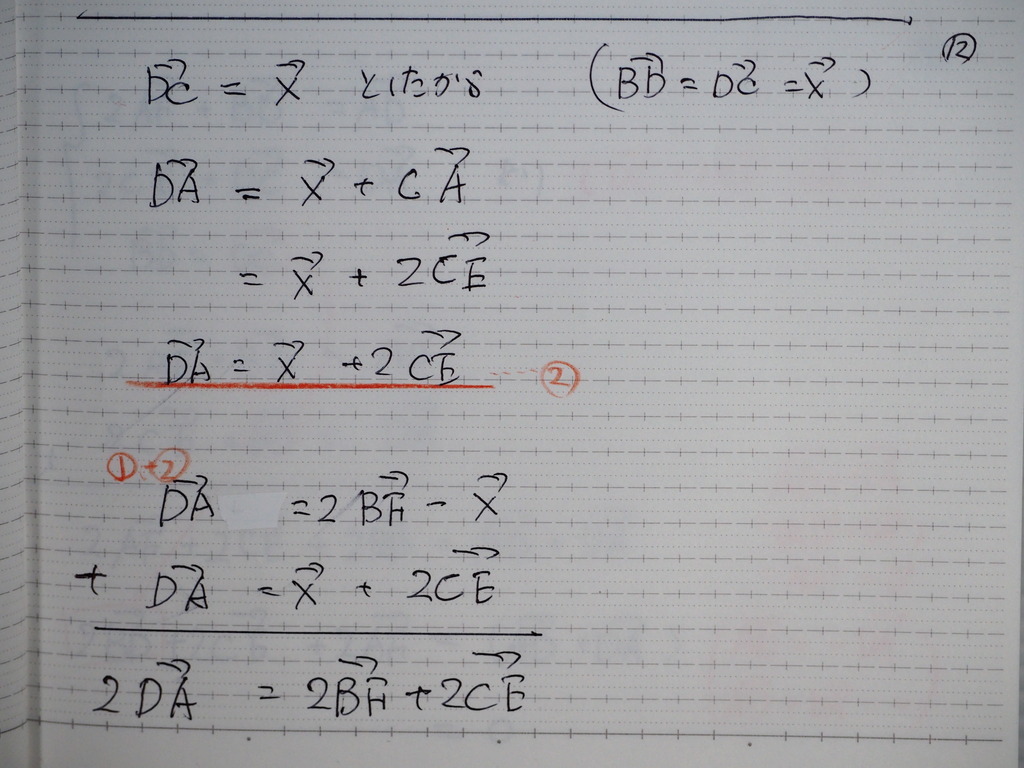 ⑫
DC→ = X→ としたから (BD→ = DC→ = X→)
DA→ = X→ + CA→
= X→ + 2CE→
DA→ = X→ + 2CE→ ……②
①+②
DA→ = 2BF→ - X→
+ DA→ = X→ + 2CE→
2DA→ = 2BF→ + 2CE→